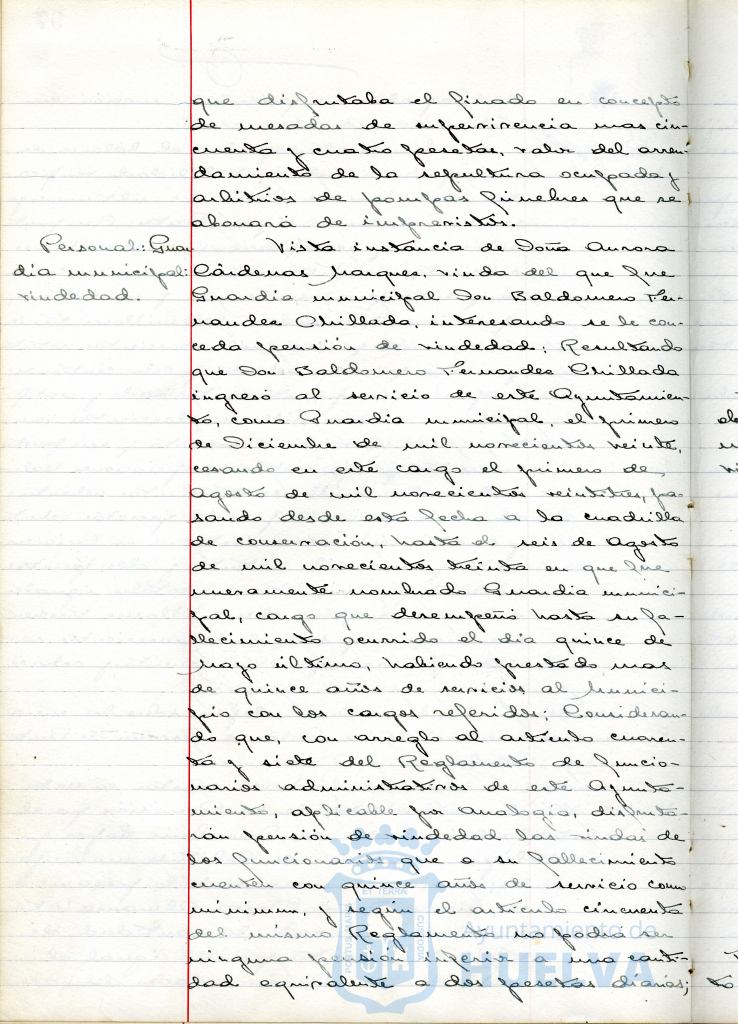 que disfrutaba el finado en concepto
de mesadas de supervivencia mas cin-
cuenta y cuatro pesetas, valor del arren-
damiento de la sepultura ocupada y
arbitrios de pompas fúnebres que se
abonará de imprevistos.
Personal: Guar
dia municipal:
viudedad.
Vista instancia de Doña Aurora
Cárdenas Marques, viuda del que fue
Guardia municipal Don Baldomero Fer-
nandez Chillada, interesando se le con-
ceda pensión de viudedad; Resultando
que Don Baldomero Fernandez Chillada
ingresó al servicio de este Ayuntamien-
to, como Guardia municipal, el primero
de Diciembre de mil novecientos veinte,
cesando en este cargo el primero de
Agosto de mil novecientos veintitres, pa-
sando desde esta fecha a la cuadrilla
de conservación, hasta el seis de Agosto
de mil novecientos treinta en que fue
nuevamente nombrado Guardia munici-
pal, cargo que desempeñó hasta su fa-
llecimiento ocurrido el dia quince de
Mayo último, habiendo prestado mas
de quince años de servicios al Munici-
pio con los cargos referidos; Consideran-
do que, con arreglo al articulo cuaren-
ta y siete del Reglamento de funcio-
narios administrativos de este Ayunta-
miento, aplicable por analogia, disfruta-
rán pensión de viudedad las viudas de
los funcionarios que a su fallecimiento
cuenten con quince años de servicio como
minimum, y según el articulo cincuenta
del mismo Reglamento no podia ser
ninguna pensión inferior a una canti-
dad equivalente a dos pesetas diarias;
Ayuntamiento de
HUELVA